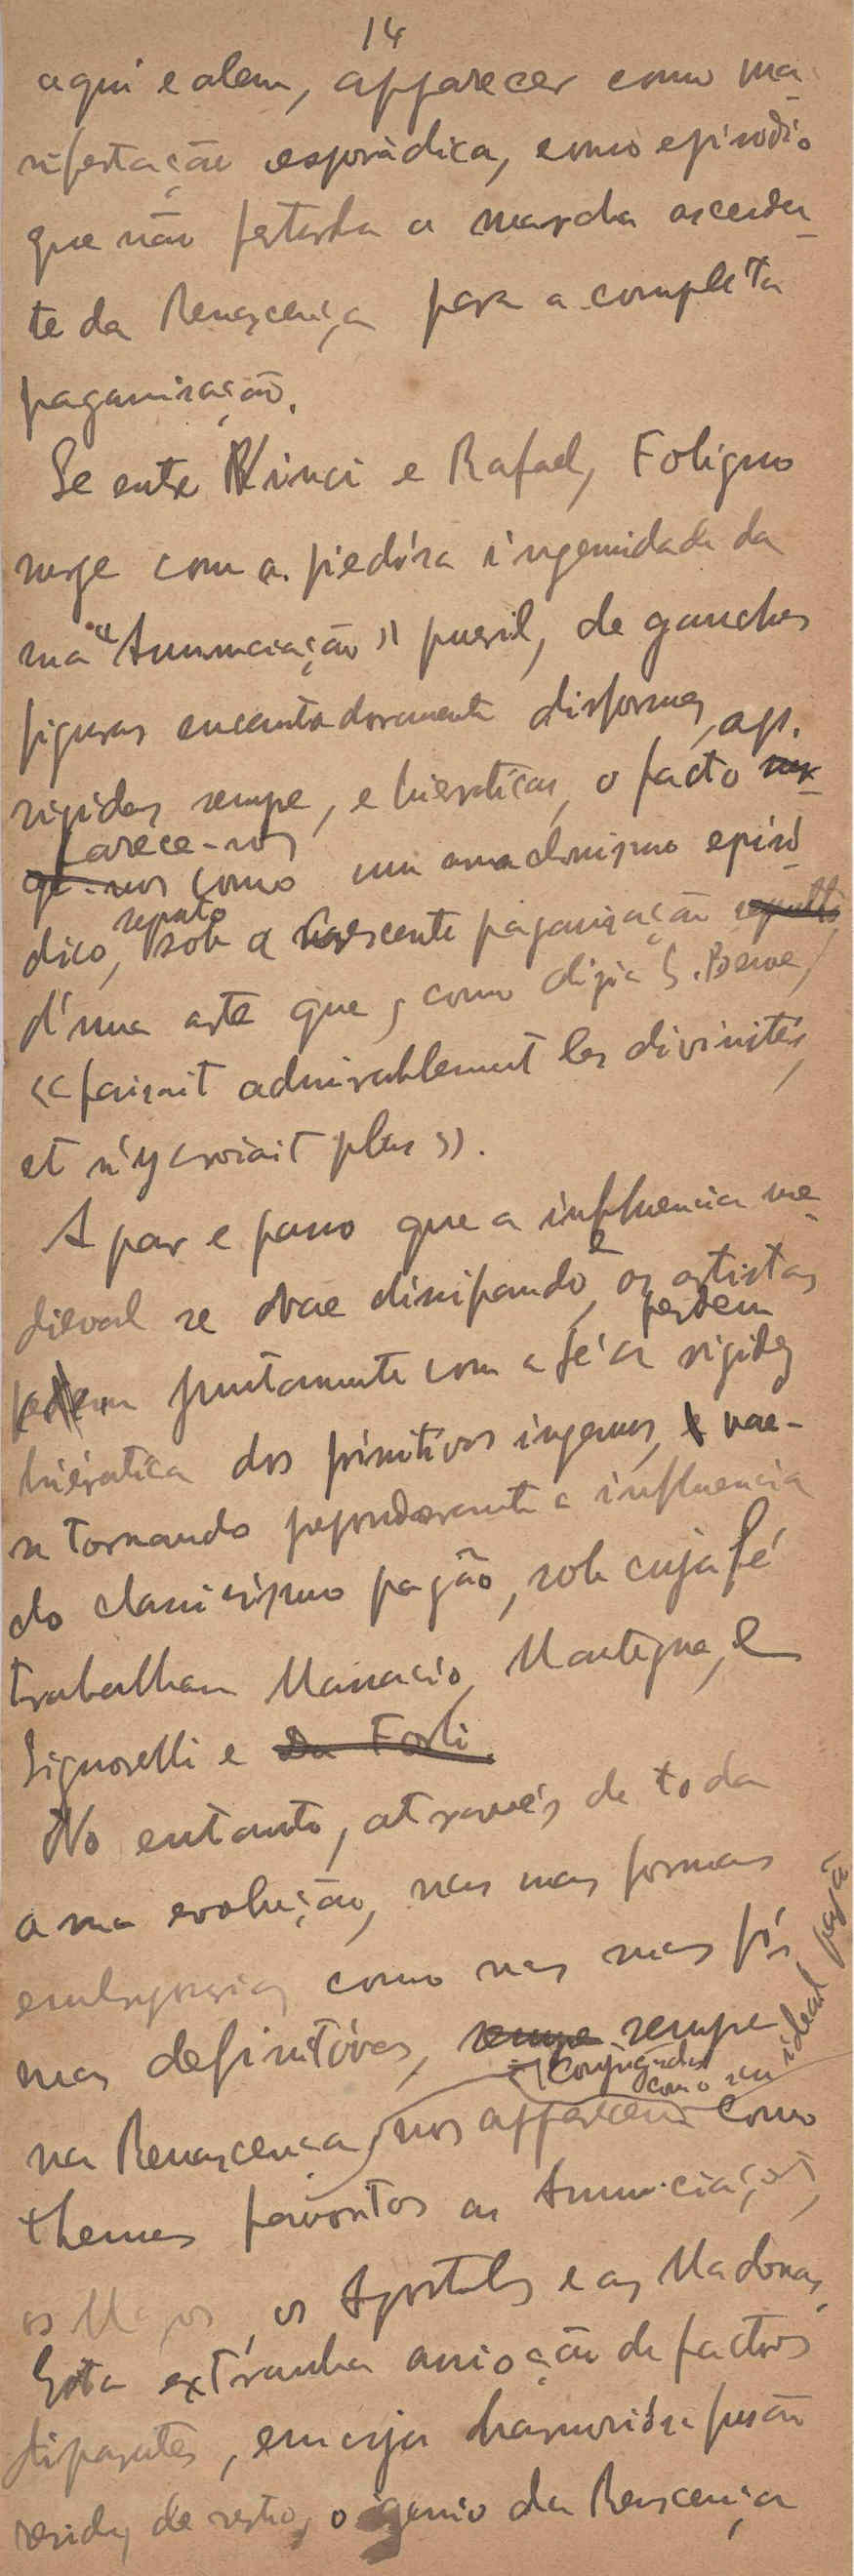 14
aqui e alem, apparecer como ma-
nifestação esporádica, como episodio
que não perturba a marcha ascenden-
te da Renascença para a completa
paganisação.
Se entre Vinci e Rafael, Foligno
surge com a piedósa ingenuidade da
sua "Annunciação" pueril, de gauches
figuras encantadoramente disformes,
rigidas sempre, e hieraticas, o facto ap-
parece-nos como um anachronismo episó-
dico, sob a crescente paganisação
d'uma arte que, como dizia S. Beuve,
«faisait admirablement les divinités,
et n'y croiait plus».
A par e passo que a influencia me-
dieval se vae dissipando, e os artistas
perdem juntamente com a fé a rigidez
hiératica dos primitivos ingenuos, vae-
se tornando preponderante a influencia
do classicismo pagão, sob cuja fé
trabalham Masaccio, Mantegna, e
Signorelli e Da Forli.
No entanto, através de toda
a sua evolução, nas suas formas
embryonarias como nas suas fór-
mas definitivas, sempre sempre
conjugados como seu ideal pagão
na Renascença, nos apparecem como
themas favoritos as Annunciações,
os Magos, os Apostolos e as Madonas.
Esta extranha associação de factos
disparates, em cuja harmoniósa fusão
reside, de resto, o genio da Renscença